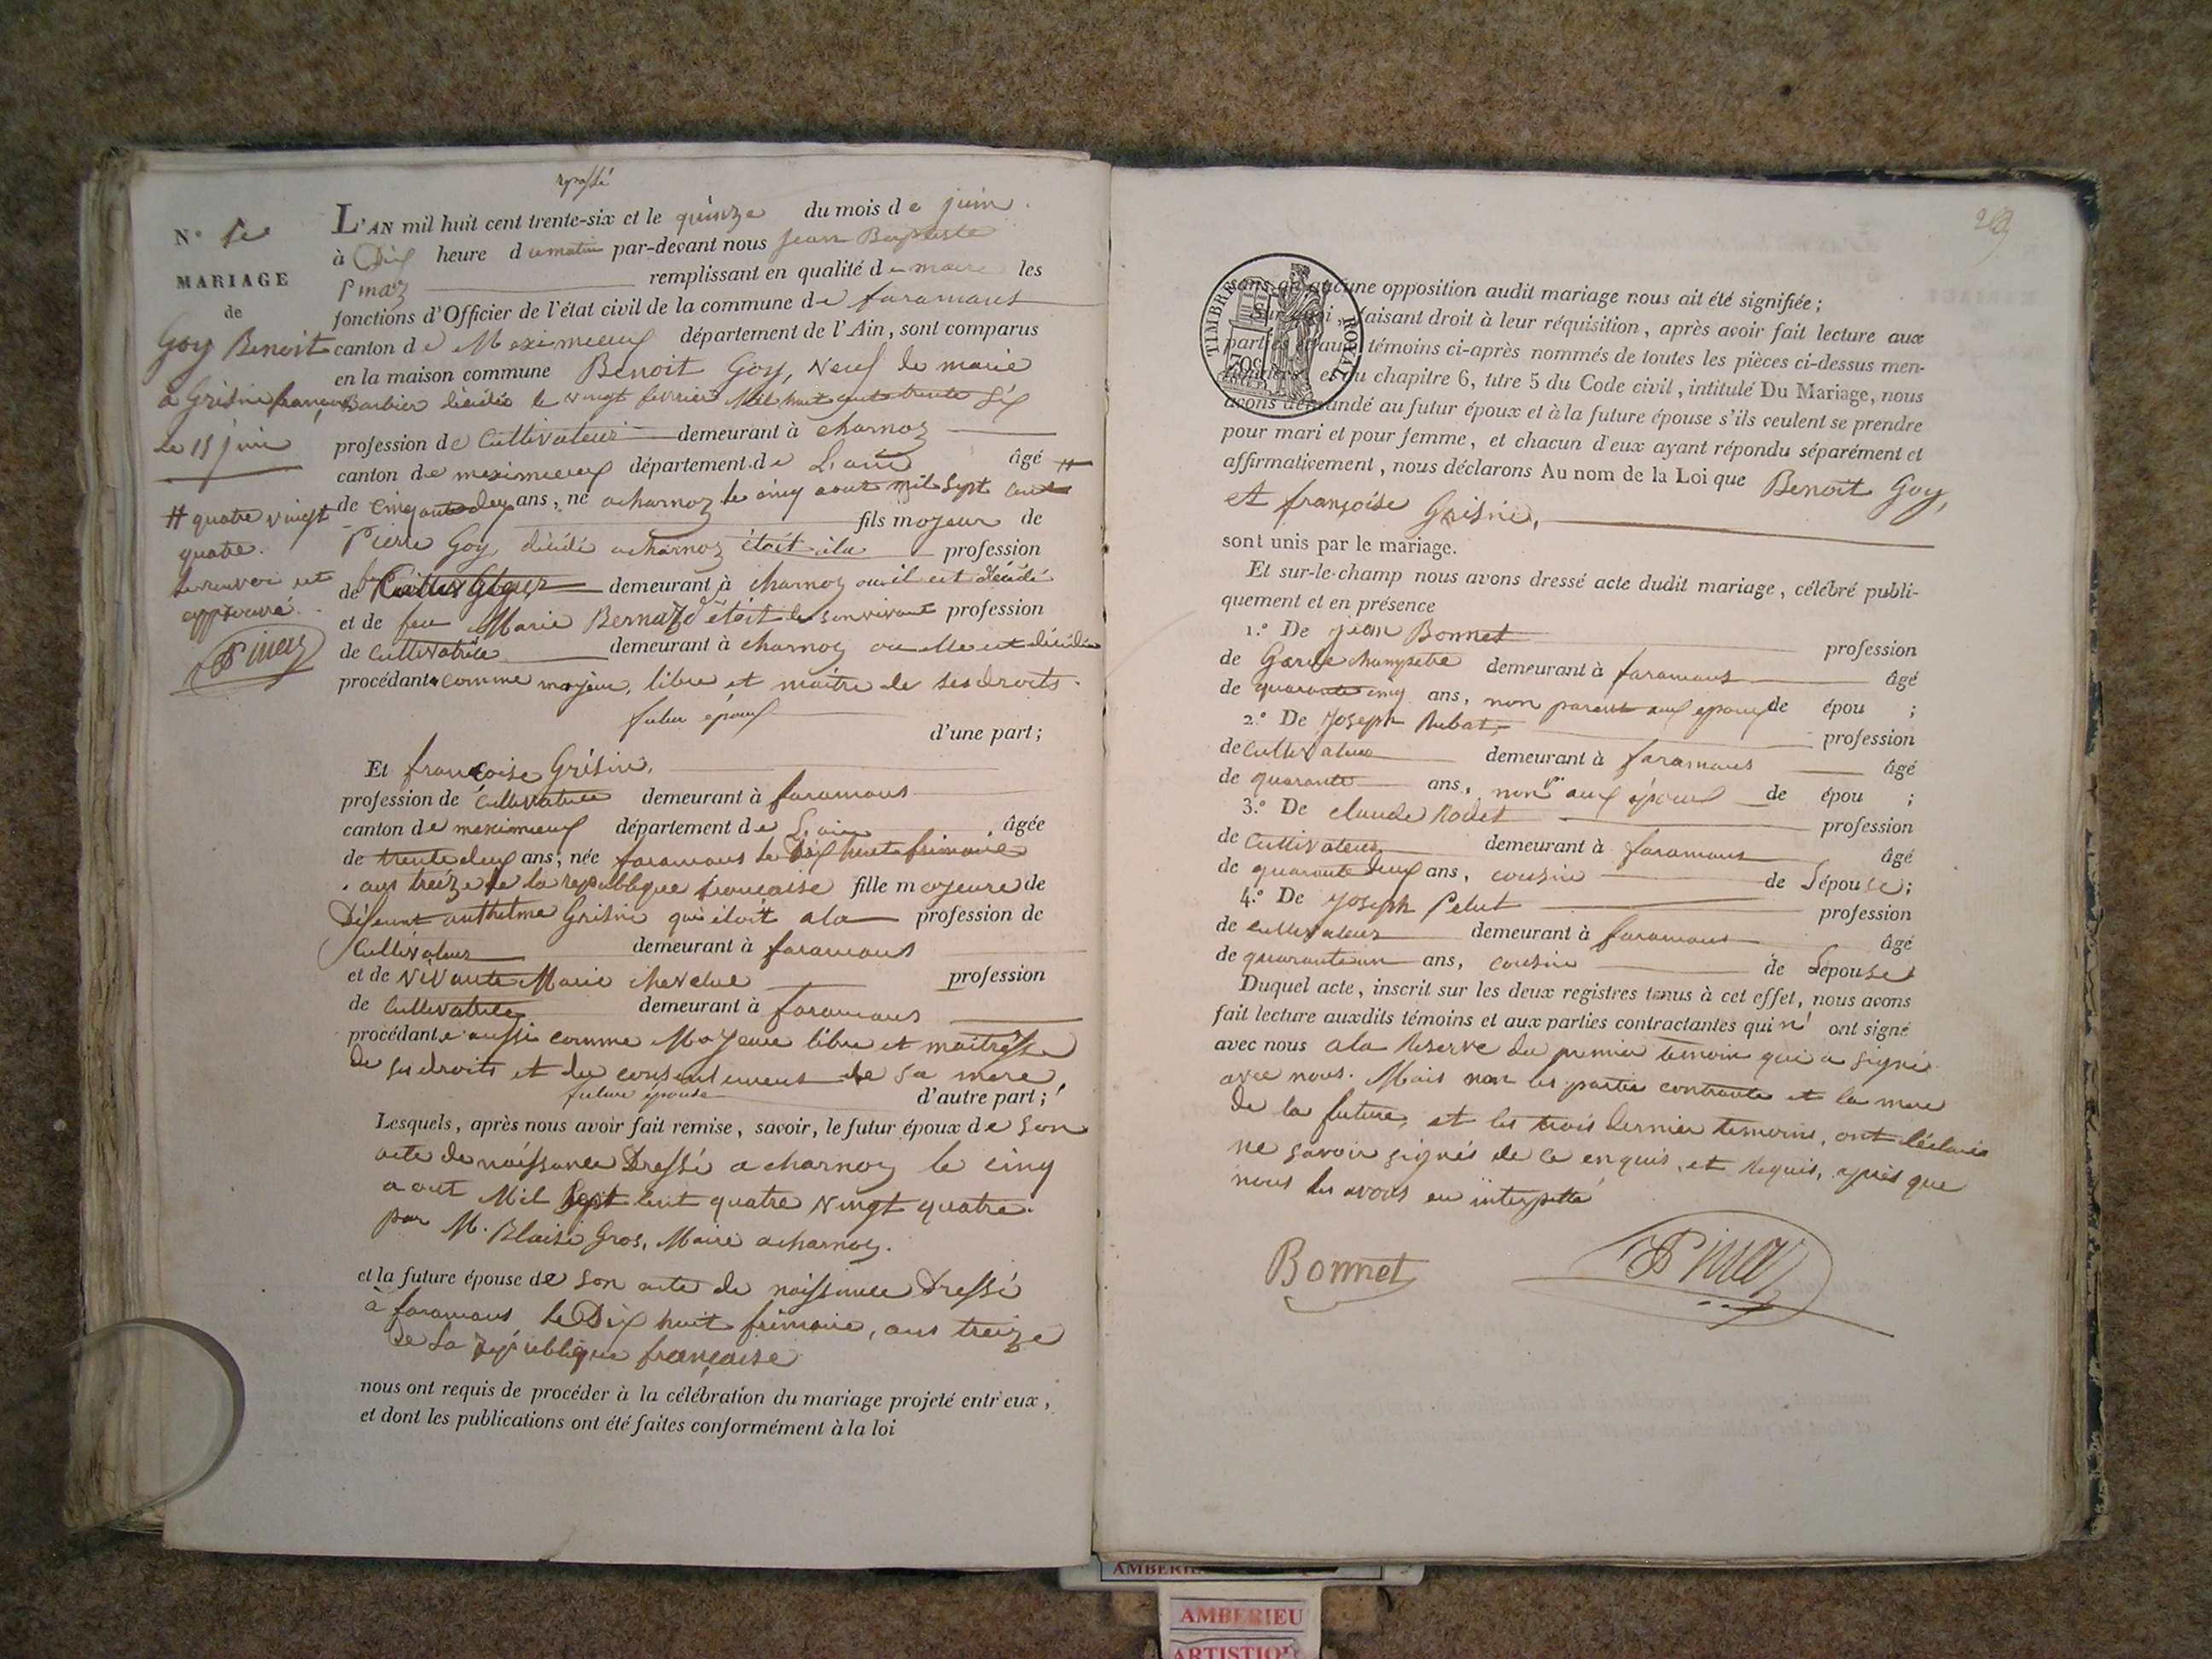 N.° 5e
MARIAGE
de
Goy Benoit
a Grisni françoise
le 15 juin
# quatre vingt
quatre.
le renvoi est
approuvé.
Pinaz
L'AN mil huit cent trente-six et le quinze du mois de juin
à Dix heure du matin par-devant nous Jean Baptiste
Pinaz remplissant en qualité de maire les
fonctions d'Officier de l'état civil de la commune de faramans
canton de Meximieux département de l'Ain, sont comparus
en la maison commune Benoit Goy, Neuf de marie
Barbier décédée le vingt fevrier Mil huit cent trente Six
profession de Cultivateur demeurant à charnoz
canton de meximieux département de L'ain âgé #
de Cinquante deux ans, né a charnoz le cinq aout mil Sept Cent
fils majeur de
Pierre Goy, décédé a charnoz étoit a la profession
de Cultivateur demeurant à charnoz ou il est décédé
et de feu Marie Bernard étoit de son vivant profession
de Cultivatrice demeurant à charnoz ou elle est décédée
procédant comme majeur, libre et maitre de ses droits.
futur époux
d'une part;
Et françoise Grisni,
profession de Cultivatrice demeurant à faramans
canton de meximieux département de L'ain âgée
de trente deux ans, née faramans le Dix huit frimaire
ans treize de la republique française fille majeure de
Défeunt anthelme Grisni qui étoit a la profession de
Cultivateur demeurant à faramans
et de Vivante Marie chevelue profession
de Cultivatrice demeurant à faramans
procédante aussi comme Majeure libre et maitresse
de ses droits et du consentement de sa mere,
future épouse d'autre part;
Lesquels, après nous avoir fait remise, savoir, le futur époux de Son
acte de naissance Dressé a charnoz le cinq
aout Mil Sept Cent quatre Vingt quatre.
par M. Blaise Gros, Maire a charnoz.
et la future épouse de Son acte de naissance Dressé
à faramans le Dix huit frimaire, ans treize
de La république française
nous ont requis de procéder à la célébration du mariage projeté entr'eux,
et dont les publications ont été faites conformément à la loi
TIMBRE ROYAL
70c
aucune opposition audit mariage nous ait été signifiée;
Sur quoi, faisant droit à leur réquisition, après avoir fait lecture aux
parties et aux témoins ci-après nommés de toutes les pièces ci-dessus men-
tionnées, et du chapitre 6, titre 5 du Code civil, intitulé Du Mariage, nous
avons demandé au futur époux et à la future épouse s'ils veulent se prendre
pour mari et pour femme, et chacun d'eux ayant répondu séparément et
affirmativement, nous déclarons Au nom de la Loi que Benoit Goy,
et françoise Grisni,
sont unis par le mariage.
Et sur-le-champ nous avons dressé acte dudit mariage, célébré publi-
quement et en présence
1.° De jean Bonnet profession
de Garde champetre demeurant à faramans âgé
de quarante cinq ans, non parent aux epoux de épou ;
2.° De Joseph Rebat, profession
de Cultivateur demeurant à faramans âgé
de quarante ans, non pt aux époux de épou ;
3.° De claude Rodet profession
de Cultivateur demeurant à faramans âgé
de quarante deux ans, cousin de L'épouse;
4.° De Joseph Pelut profession
de cultivateur demeurant à faramans âgé
de quarante un ans, cousin de L'épouse
Duquel acte, inscrit sur les deux registres tenus à cet effet, nous avons
fait lecture auxdits témoins et aux parties contractantes qui n' ont signé
avec nous a la Reserve du premier temoin qui a signé
avec nous. Mais non les partie contracte et la mere
de la future, et les trois dernier temoins, ont déclaré
ne savoir signés de ce enquis, et Requis, après que
nous les avons eu interpellé
Bonnet
Pinaz
AMBERIEU
AMBERIEU